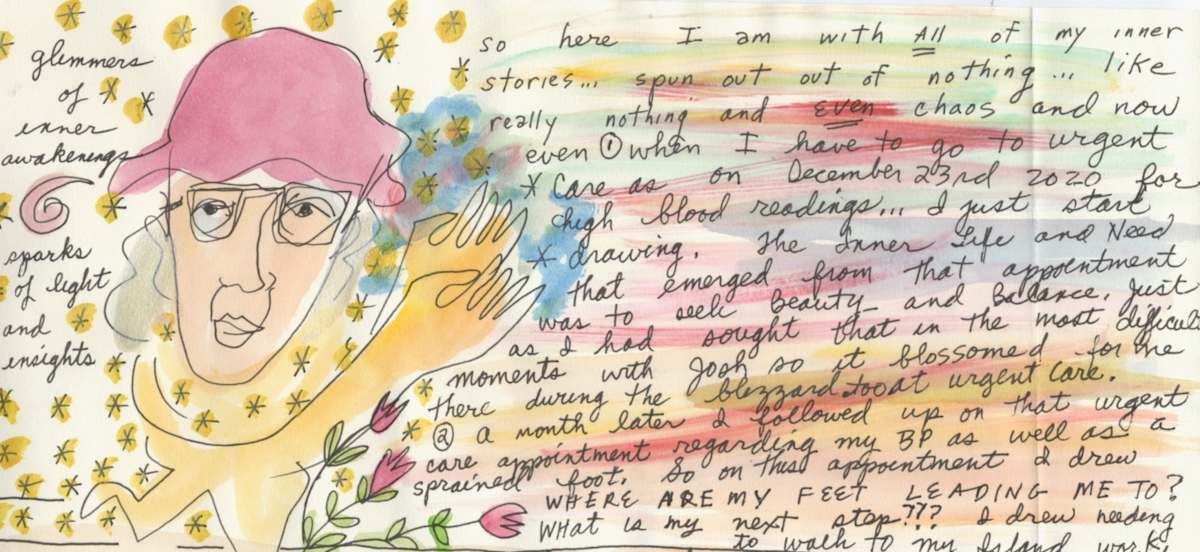 glimmers
of
inner
awakenings
sparks
of light
and
insights
so here I am with All of my inner
stories... spun out out of nothing... like
really nothing and EVEN chaos and now
even ① when I have to go to urgent
* Care as on December 23rd 2020 for
high blood readings... I just start
* drawing. The Inner Life and Need
that emerged from that appointment
was to seek Beauty and Balance. Just
as I had sought that in the most difficult
moments with Josh so it blossomed for me
there during the blezzard too at urgent care.
② a month later I followed up on that urgent
care appointment regarding my BP as well as a
sprained foot. So on this appointment I drew
WHERE ARE MY FEET LEADING ME TO?
WHAT is my next step??? I drew needing
to walk to my Island work.